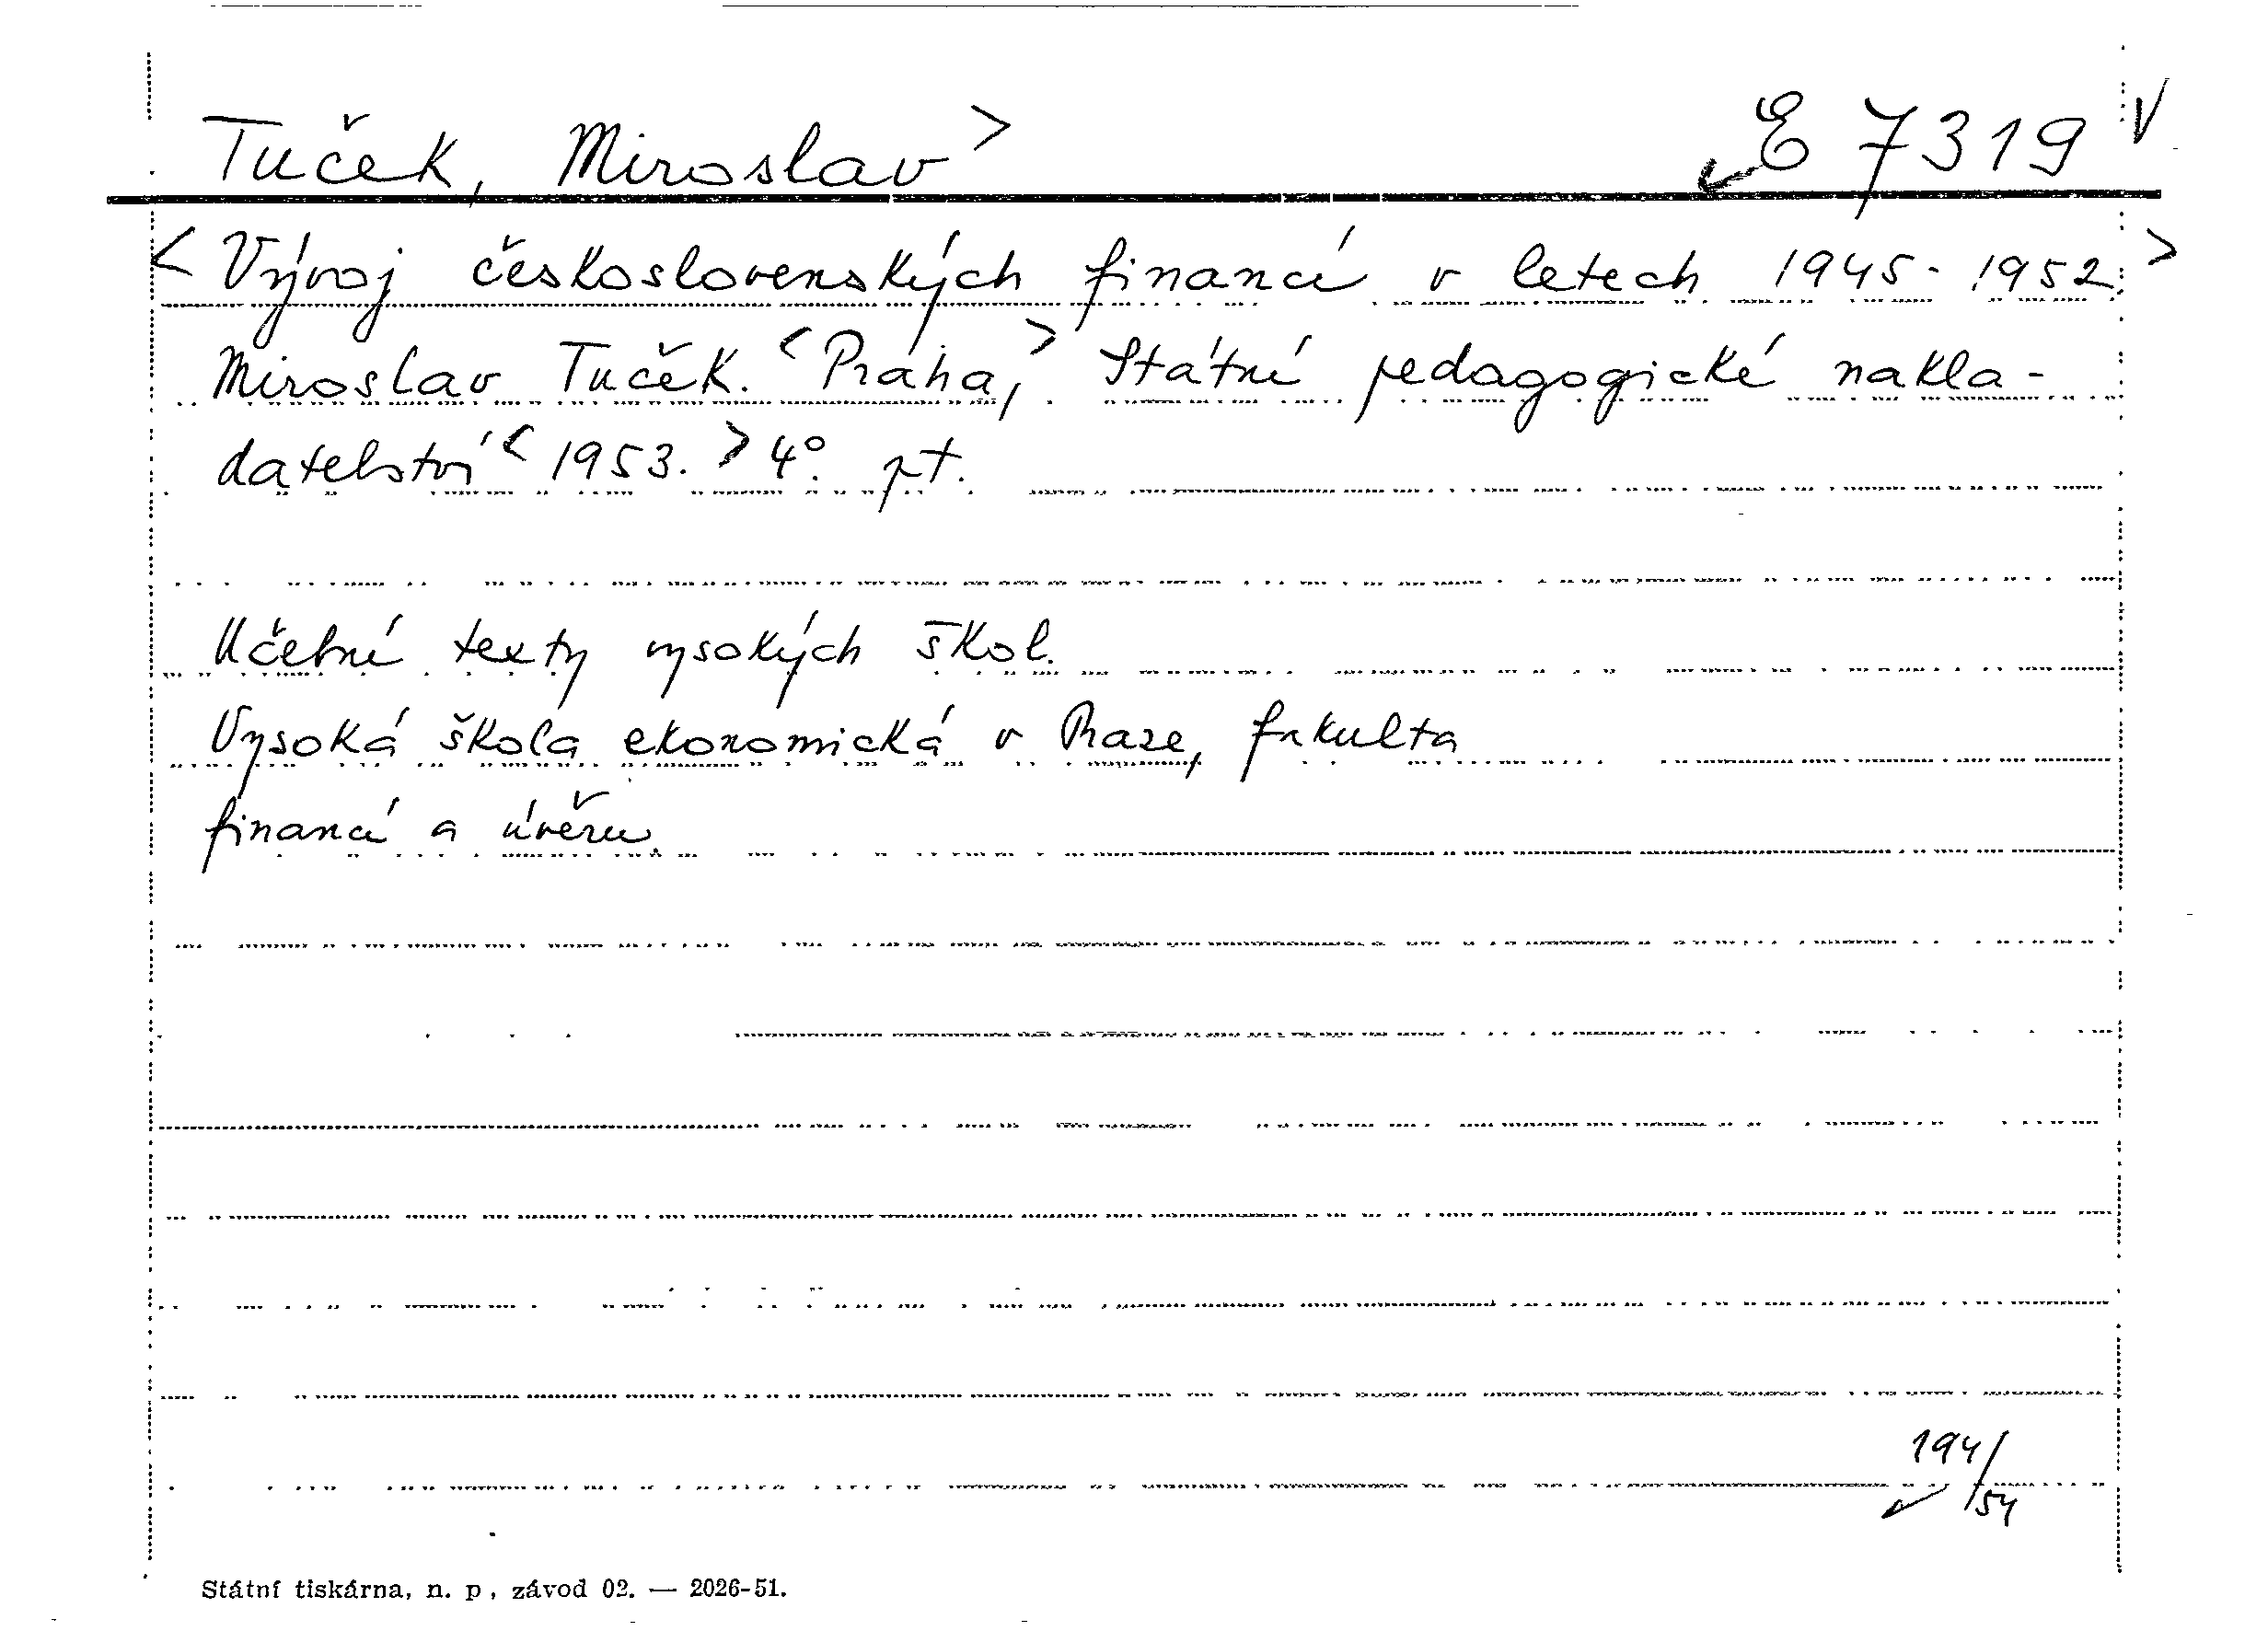 Tuček, Miroslav> E 7319 V
<Vývoj československých financí v letech 1945-1952.>
Miroslav Tuček. <Praha,> Státní pedagogické nakla-
datelství <1953.> 4°. pt.
Učební texty vysokých škol.
Vysoká škola ekonomická v Praze, fakulta
financí a úvěru.
194/
/54
Státní tiskárna, n. p., závod 02. — 2026-51.